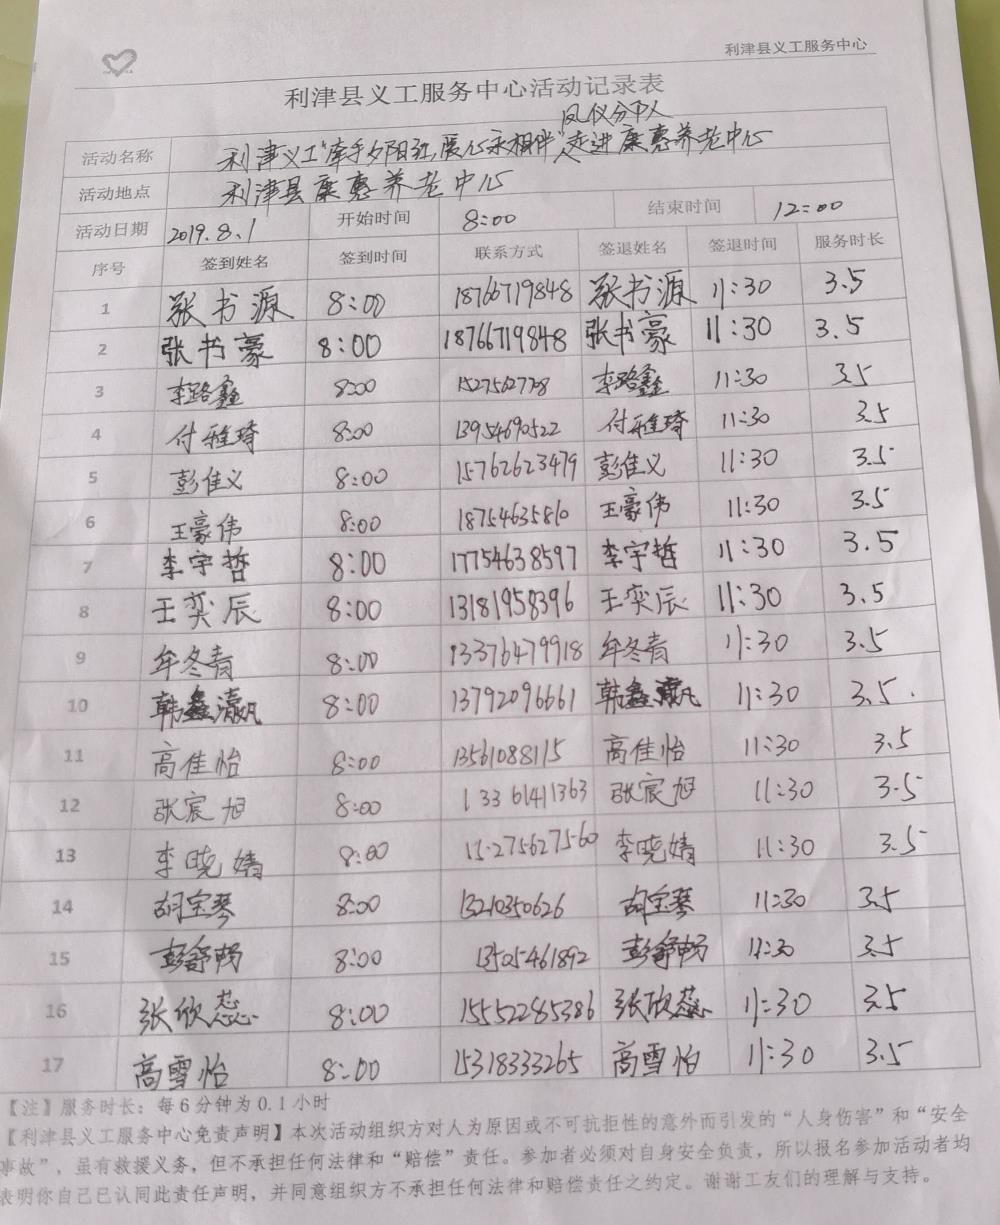 利津县义工服务中心
利津县义工服务中心活动记录表
凤仪分队
活动名称 利津义工"牵手夕阳红,爱心永相伴"走进康惠养老中心
活动地点 利津县康惠养老中心
活动日期 2019.8.1 开始时间 8:00 结束时间 12:00
序号 签到姓名 签到时间 联系方式 签退姓名 签退时间 服务时长
1 张书源 8:00 18766719848 张书源 11:30 3.5
2 张书豪 8:00 18766719848 张书豪 11:30 3.5
3 李璐鑫 8:00 李璐鑫 11:30 3.5
4 付雅琦 8:00 13954690522 付雅琦 11:30 3.5
5 彭佳义 8:00 15762623479 彭佳义 11:30 3.5
6 王豪伟 8:00 18754635810 王豪伟 11:30 3.5
7 李宇哲 8:00 17754638597 李宇哲 11:30 3.5
8 王奕辰 8:00 13181958396 王奕辰 11:30 3.5
9 牟冬青 8:00 13376479918 牟冬青 11:30 3.5
10 韩鑫瀛 8:00 13792096661 韩鑫瀛 11:30 3.5
11 高佳怡 8:00 13561088115 高佳怡 11:30 3.5
12 张宸旭 8:00 13361411363 张宸旭 11:30 3.5
13 李晓婧 8:00 15275627560 李晓婧 11:30 3.5
14 胡宝琴 8:00 13210350626 胡宝琴 11:30 3.5
15 彭舒畅 8:00 13505461892 彭舒畅 11:30 3.5
16 张欣蕊 8:00 15552285386 张欣蕊 11:30 3.5
17 高雪怡 8:00 15318333265 高雪怡 11:30 3.5
【注】服务时长:每6分钟为0.1小时
【利津县义工服务中心免责声明】本次活动组织方对人为原因或不可抗拒性的意外而引发的"人身伤害"和"安全
事故",虽有救援义务,但不承担任何法律和"赔偿"责任。参加者必须对自身安全负责,所以报名参加活动者均
表明你自己已认同此责任声明,并同意组织方不承担任何法律和赔偿责任之约定。谢谢工友们的理解与支持。